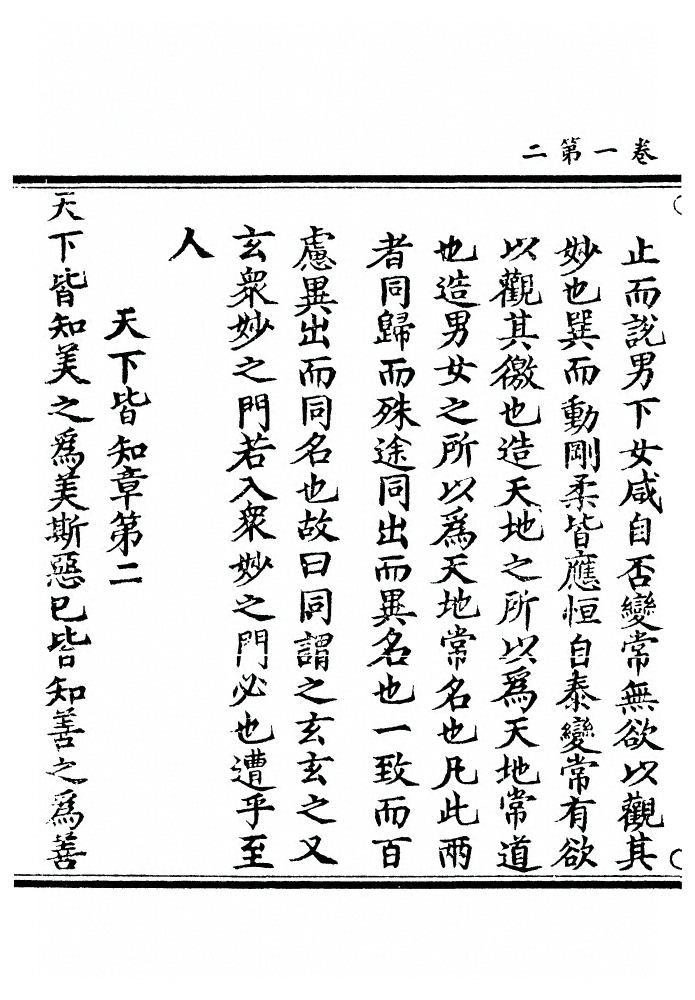 卷一第二
止而說男下女咸自否變常無欲以觀其
妙也巽而動剛柔皆應恒自泰變常有欲
以觀其徼也造天地之所以為天地常道
也造男女之所以為天地常名也凡此兩
者同歸而殊途同出而異名也一致而百
慮異出而同名也故曰同謂之玄玄之又
玄衆妙之門若入衆妙之門必也遭乎至
人
天下皆知章第二
天下皆知美之為美斯惡已皆知善之為善